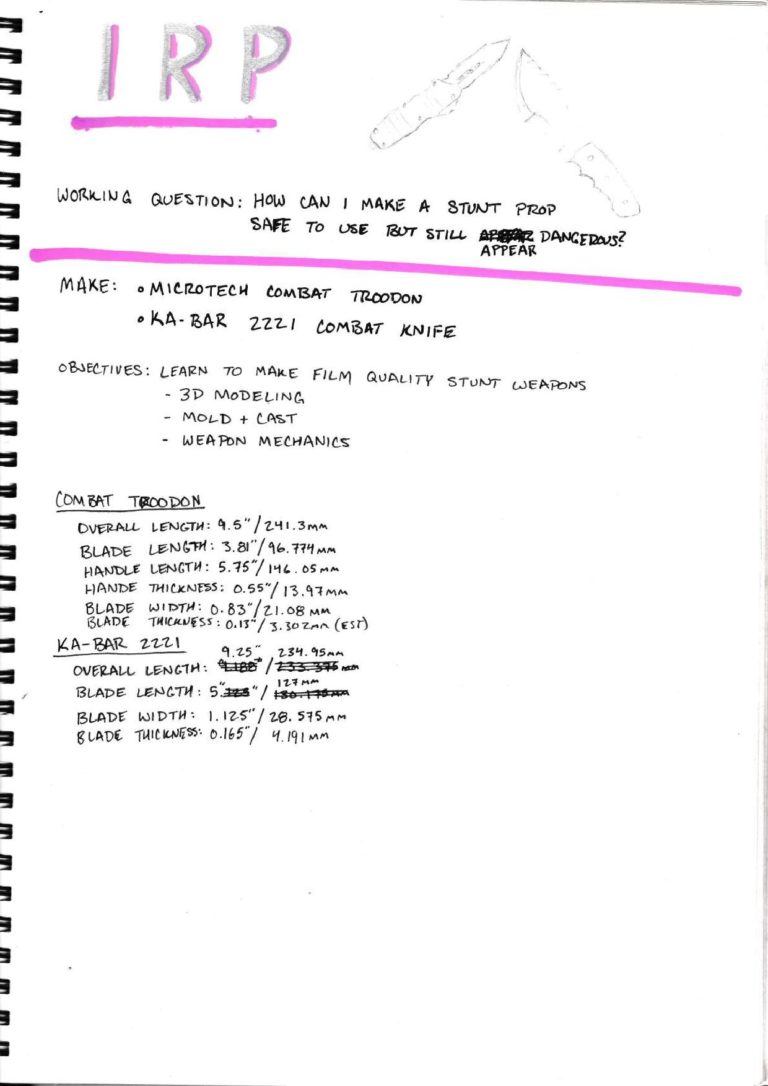 IRP
WORKING QUESTION: HOW CAN I MAKE A STUNT PROP
SAFE TO USE BUT STILL APPEAR DANGEROUS?
MAKE: • MICROTECH COMBAT TROODON
• KA-BAR 2221 COMBAT KNIFE
OBJECTIVES: LEARN TO MAKE FILM QUALITY STUNT WEAPONS
- 3D MODELING
- MOLD + CAST
- WEAPON MECHANICS
COMBAT TROODON
OVERALL LENGTH: 9.5"/241.3MM
BLADE LENGTH: 3.81"/96.774MM
HANDLE LENGTH: 5.75"/146.05MM
HANDE THICKNESS: 0.55"/13.97MM
BLADE WIDTH: 0.83"/21.08MM
BLADE THICKNESS: 0.13"/3.302MM (EST)
KA-BAR 2221
OVERALL LENGTH: 9.25"/234.95MM
BLADE LENGTH: 5"/127MM
BLADE WIDTH: 1.125"/28.575MM
BLADE THICKNESS: 0.165"/4.191MM